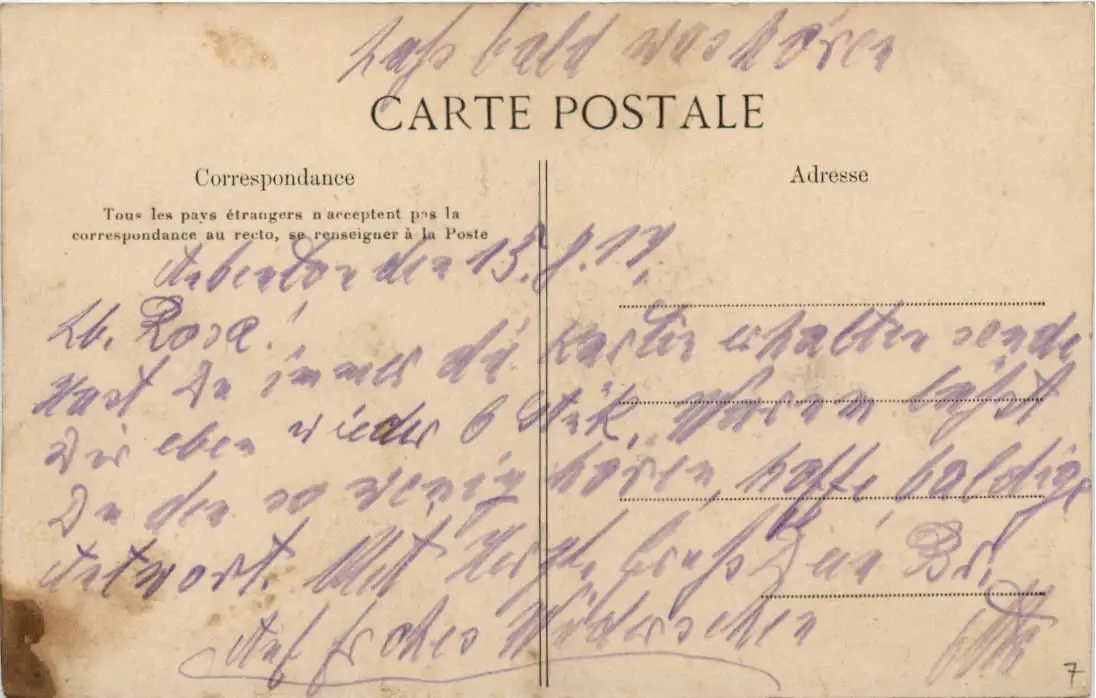 Laß bald was hören
CARTE POSTALE
Correspondance
Adresse
Tous les pays étrangers n'acceptent pas la
correspondance au recto, se renseigner à la Poste
Aubenton den 13.
Lb. Rosa!
Hast Du immer die Karten erhalten sende
Dir eben wieder 6 Stük, warum läßst
Du den so wenig hören, hoffe baldige
Antwort. Mit Herzl. Gruß Dein Br.
Auf frohes Wiedersehen
7